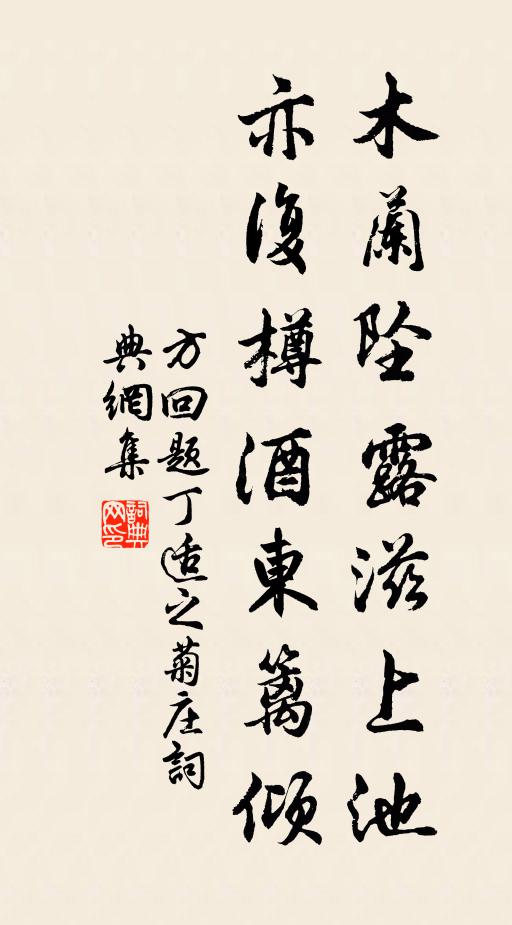 木蘭墜露滋上池
亦復樽酒東籬傾
方回题丁適之菊庄詞
典網集
詞典網印